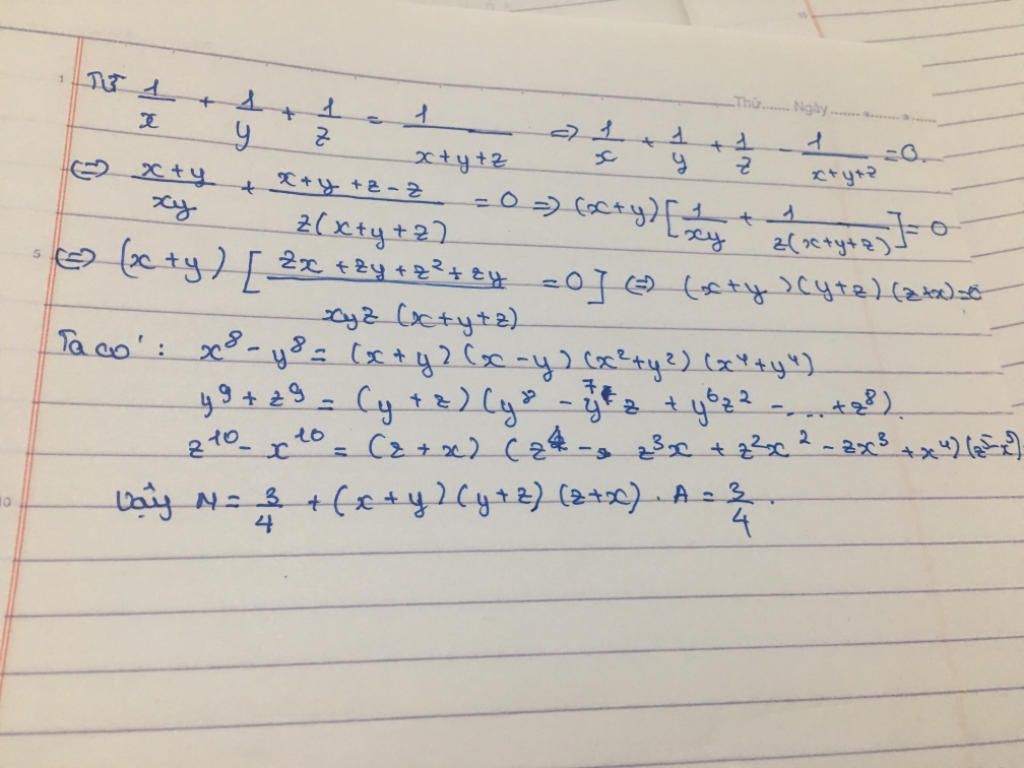 Thứ...... Ngày...............
Từ 1/x + 1/y + 1/z = 1/(x+y+z) => 1/x + 1/y + 1/z - 1/(x+y+z) = 0.
<=> (x+y)/(xy) + (x+y+z-z)/(z(x+y+z)) = 0 => (x+y)[1/(xy) + 1/(z(x+y+z))] = 0
5 <=> (x+y)[(zx+zy+z²+zy)/(xyz(x+y+z)) = 0] <=> (x+y)(y+z)(z+x)=0
Ta có: x⁸ - y⁸ = (x+y)(x-y)(x²+y²)(x⁴+y⁴)
y⁹ + z⁹ = (y+z)(y⁸ - y⁷z + y⁶z² - ... + z⁸).
z¹⁰ - x¹⁰ = (z+x)(z⁴ - z³x + z²x² - zx³ + x⁴)(z⁵-x⁵)
10 Vậy M = 3/4 + (x+y)(y+z)(z+x).A = 3/4.